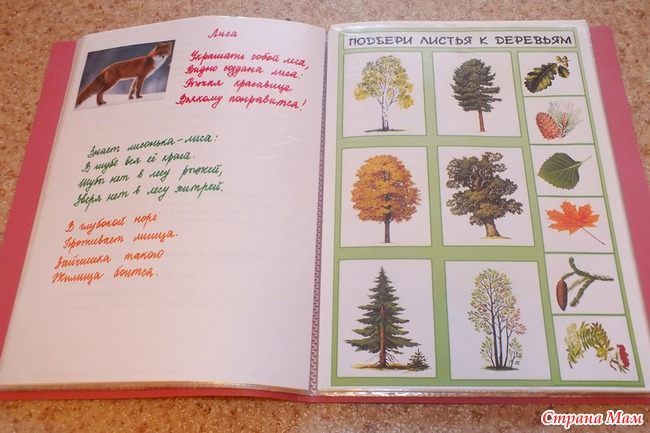 Лиса
Украшать собой леса,
Видно создана лиса:
Рыжая красавица
Всякому понравится!
Знает лисонька-лиса:
В шубе вся её краса.
Шубы нет в лесу рыжей,
Зверя нет в лесу хитрей.
В глубокой норе
Проживает лисица.
Зайчишка такого
Жилища боится.
ПОДБЕРИ ЛИСТЬЯ К ДЕРЕВЬЯМ
Страна Мам